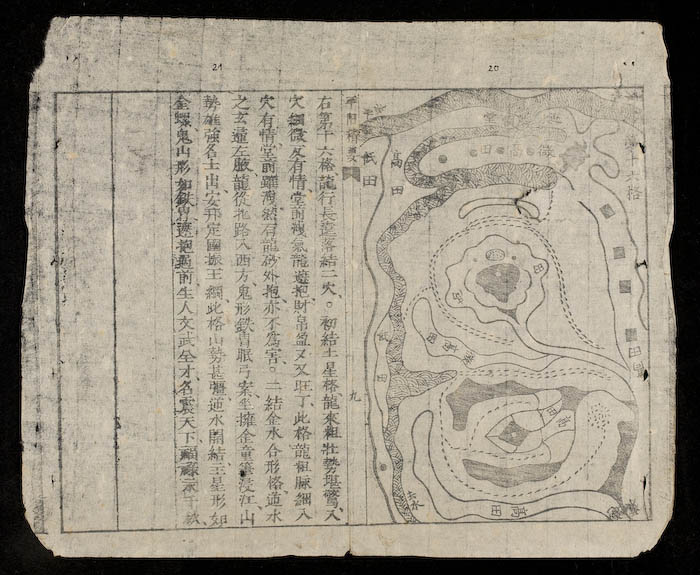 20
21
十六格
微高田
高田
低田
高田
平陽精要
九
右第十六格龍行長遠落結二穴。初結土星格龍來粗壯勢堪驚入
穴細微反有情堂前洩氣龍逆抱財帛盈又又旺丁此格龍粗脈細入
穴有情堂前雖洩然有龍砂外抱亦不為害。二結金水合形格逆水
之玄遶左龍從北路入西方鬼形鉄冑眠弓案坐擁金童浸江山
勢雄強名士出安邦定國振王綱此格山勢甚彊逆水開結玉星形如
金螺鬼山形如鉄冑遶抱前生人文武全才名震天下顯祿永千秋